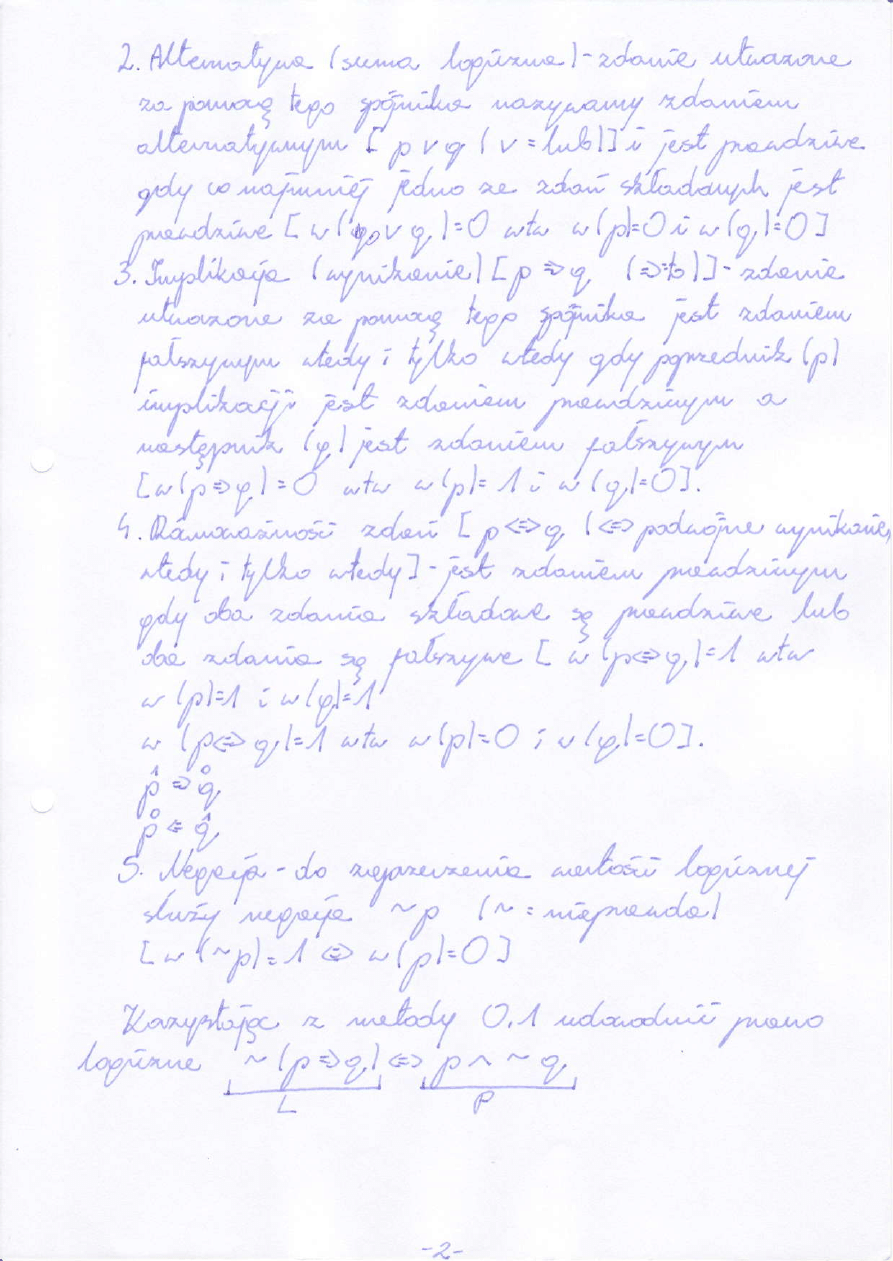 2. Alternatywa (suma logiczna) - zdanie utworzone
za pomocą tego spójnika nazywamy zdaniem
alternatywnym [ p ∨ q ( ∨ = lub)] i jest prawdziwe
gdy co najmniej jedno ze zdań składowych jest
prawdziwe [ w (p ∨ q)=0 wtw w(p)=0 i w(q)=0 ]
3. Implikacja (wynikanie) [ p ⇒ q (⇒=to)] - zdanie
utworzone za pomocą tego spójnika jest zdaniem
fałszywym wtedy i tylko wtedy gdy poprzednik (p)
implikacji jest zdaniem prawdziwym a
następnik (q) jest zdaniem fałszywym
[ w(p⇒q)=0 wtw w(p)=1 i w(q)=0].
4. Równoważność zdań [ p ⇔ q (⇔ podwójne wynikanie,
wtedy i tylko wtedy ] - jest zdaniem prawdziwym
gdy oba zdania składowe są prawdziwe lub
oba zdania są fałszywe [ w (p⇔q)=1 wtw
w (p)=1 i w(q)=1
w (p⇔q)=1 wtw w(p)=0 i w(q)=0].
1 0
p ⇒ q
0 1
p ⇐ q
5. Negacja - do zaprzeczenia wartości logicznej
służy negacja ~p (~ = nieprawda)
[ w (~p)=1 ⇔ w(p)=0 ]
Korzystając z metody 0,1 udowodnić prawo
logiczne ~(p⇒q) ⇔ p ∧ ~ q
L P
-2-